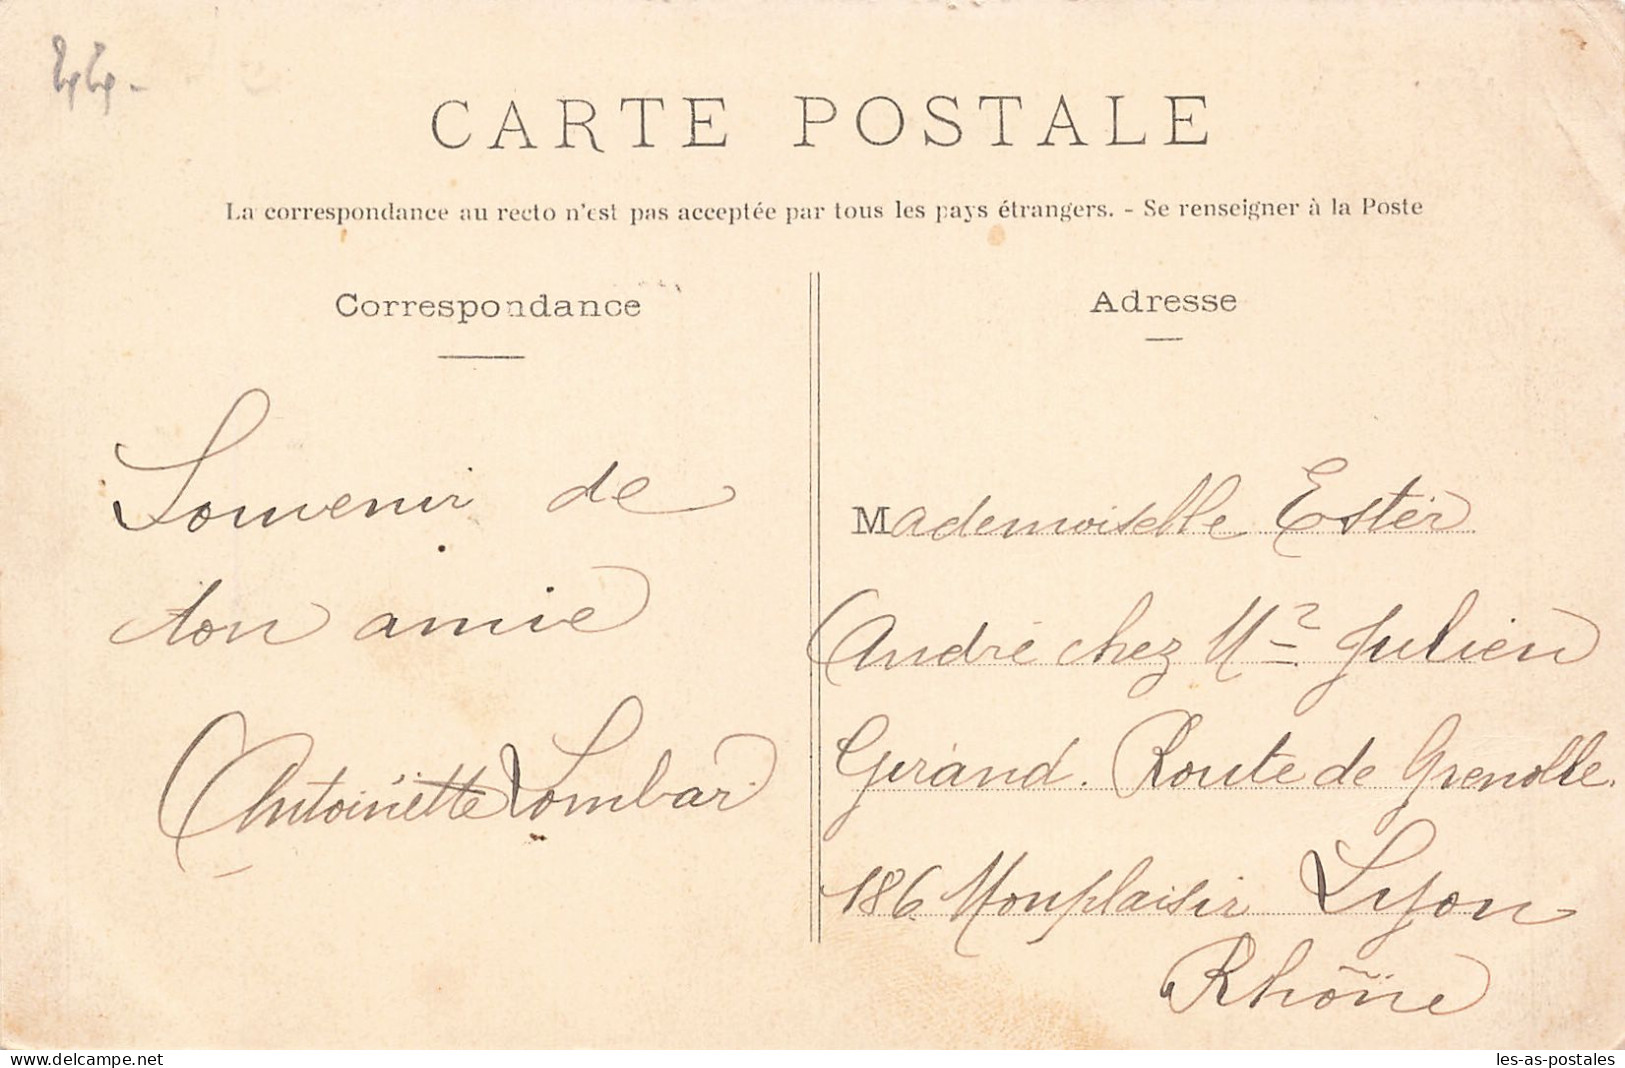 44-
CARTE POSTALE
La correspondance au recto n'est pas acceptée par tous les pays étrangers. - Se renseigner à la Poste
Correspondance
Souvenir de
ton amie
Antoinette Lombar
Adresse
Mademoiselle Ester
André chez Mr Julien
Girand. Route de Grenoble.
186 Monplaisir Lyon
Rhône
www.delcampe.net
les-as-postales